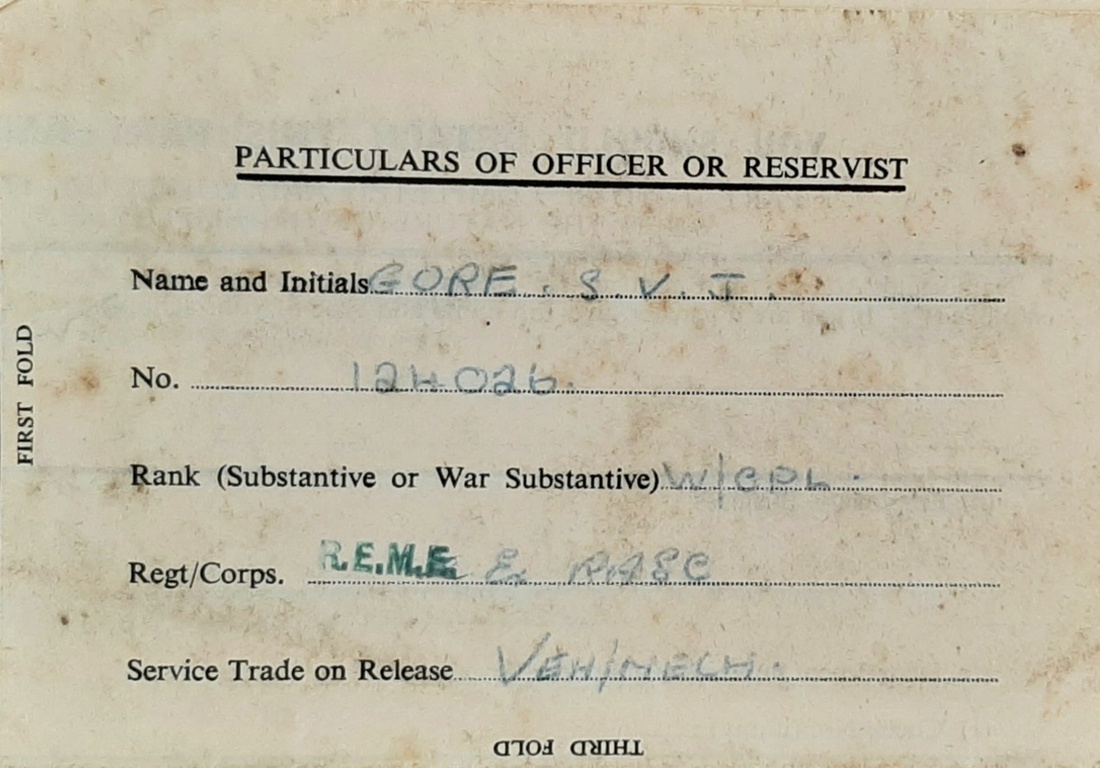 PARTICULARS OF OFFICER OR RESERVIST
Name and Initials GORE. S. V. J.
No. 124026.
Rank (Substantive or War Substantive) W/CPL.
FIRST FOLD
Regt/Corps. R.E.M.E. Ex RASC
Service Trade on Release VEH/MECH.
THIRD FOLD